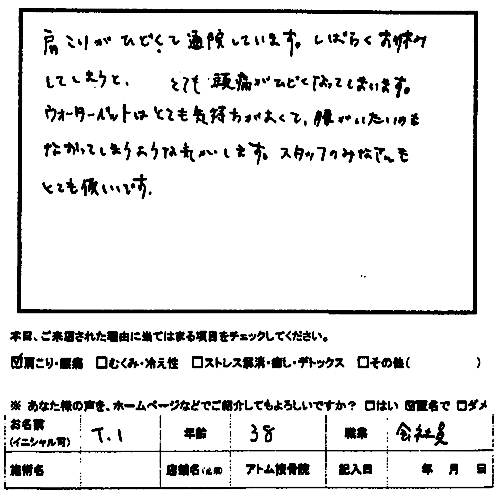 肩こりがひどくて通院しています。しばらくお休み
してしまうと、 とても頭痛がひどくなってしまいます。
ウォーターベットはとても気持ちがよくて、腰がいたいのも
なおってしまうような気がします。スタッフのみなさんも
とても優しいです。
本日、ご来店された理由に当てはまる項目をチェックしてください。
☑肩こり・腰痛 □むくみ・冷え性 □ストレス解消・癒し・デトックス □その他( )
※ あなた様の声を、ホームページなどでご紹介してもよろしいですか？ □はい ☑匿名で □ダメ
お名前
(イニシャル可) T.I 年齢 38 職業 会社員
施術名 店舗名 アトム接骨院 記入日 年 月 日